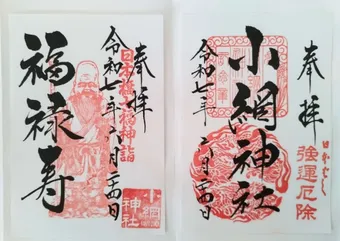 奉拝
日本橋七福神詣
令和七年六月
福禄寿
小網神社
奉拝
強運厄除
小網神社
令和七年六月